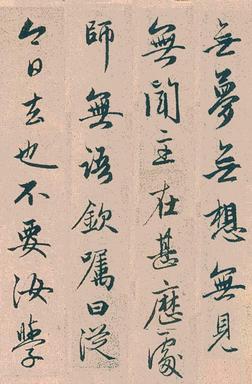 無夢無想無見
無聞主在甚麽處
師無語欽囑曰從
今日去也不要汝學